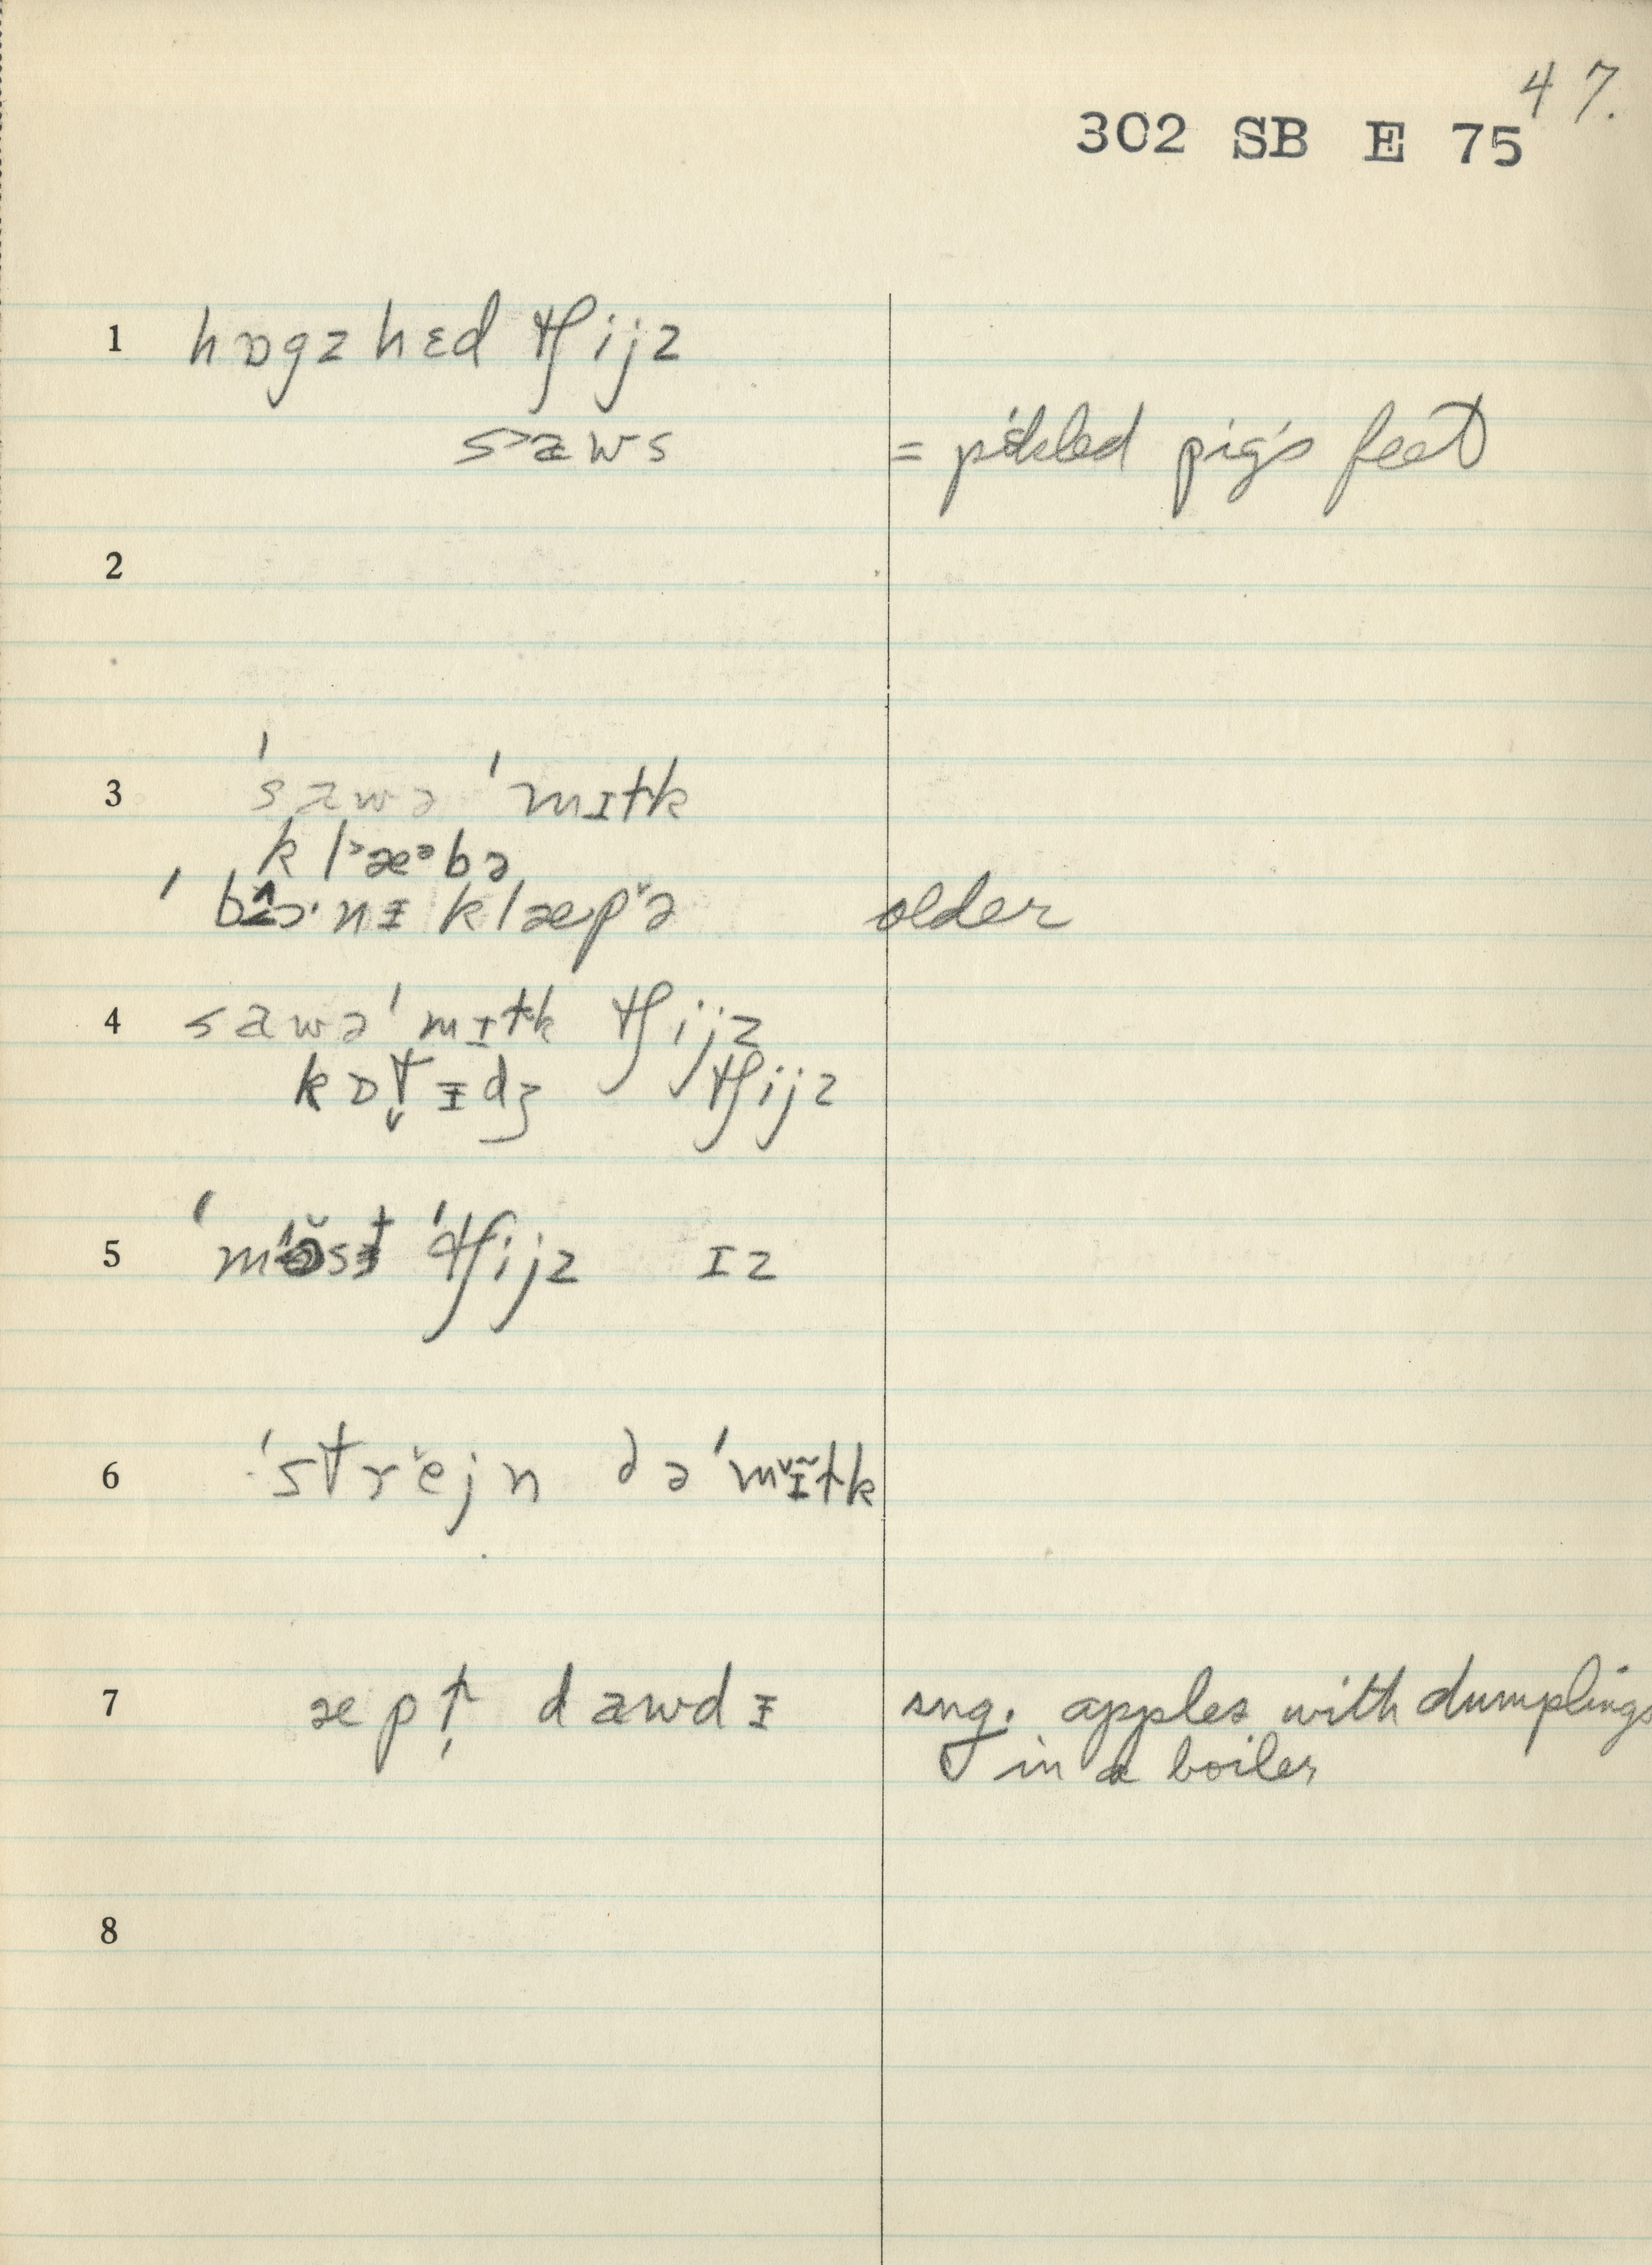 47.
302 SB E 75
1 hɒgzhɛd tʃijz
saws = pickled pig's feet
2
3 ˈsawə ˈmɪɫk
kl˃æᵊbə
ˈbɔ·nɪ klæp̌ə older
4 sawəˈmɪɫk tʃijz
kɒt̬ɪdʒ tʃijz
5 tʃijz ɪz
6 ˈstřejn ðəˈmɪɫk
7 æpɫ̩ dawdɪ sug. apples with dumplings
in a boiler
8